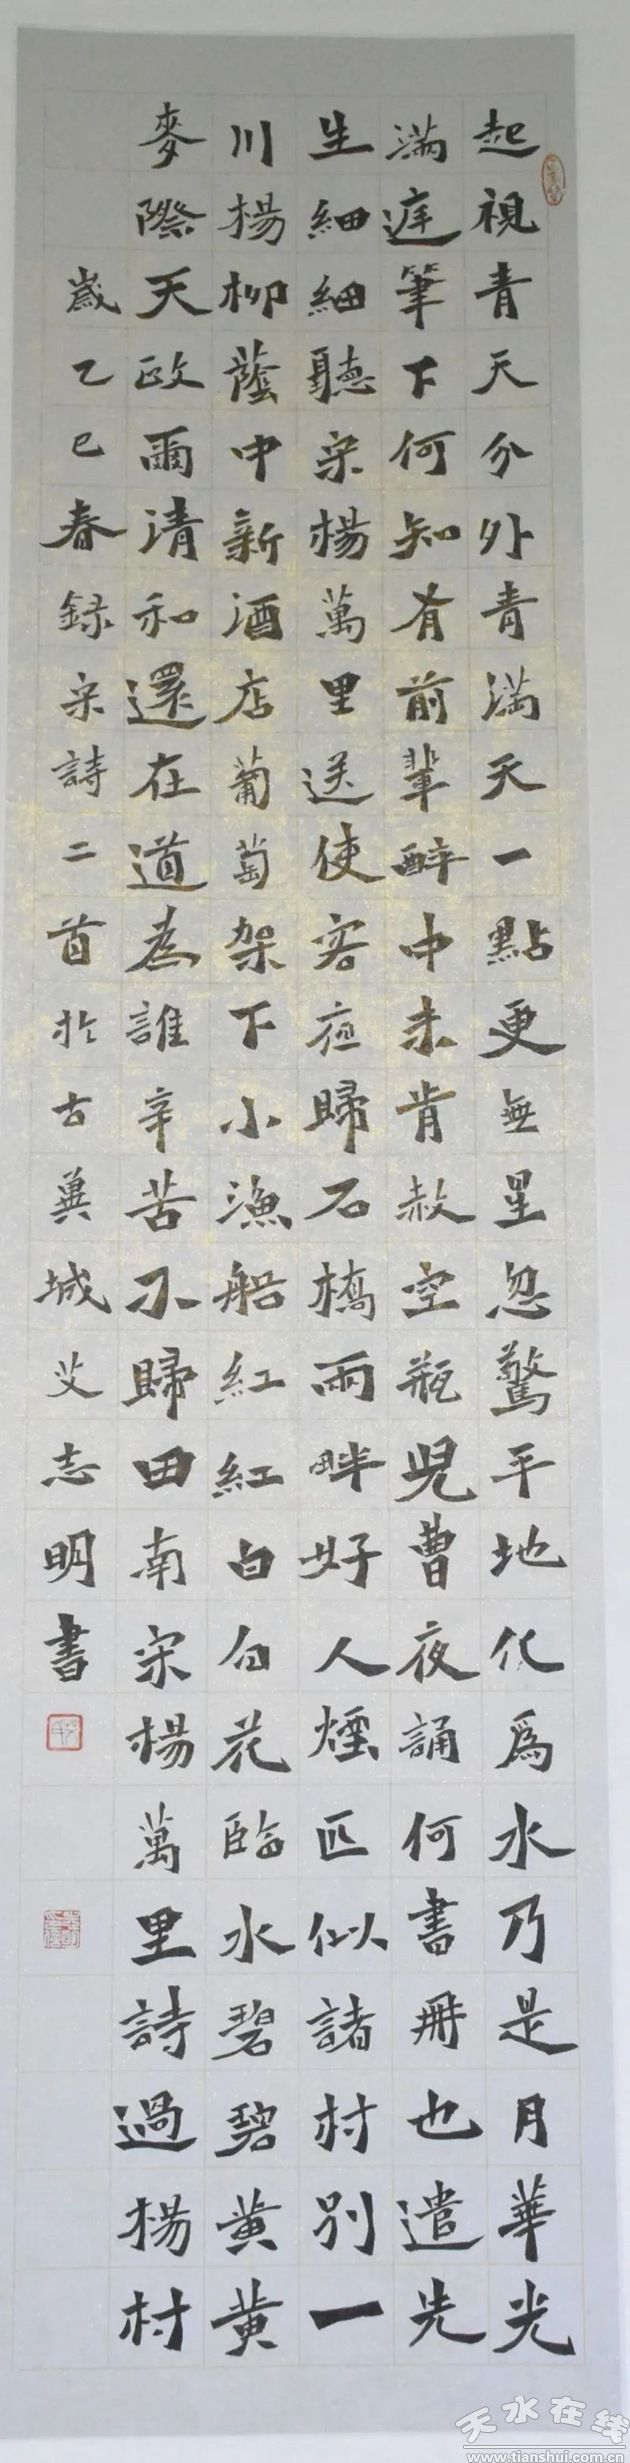 起視青天分外青滿天一點更無星忽驚平地化爲水乃是月華光
滿庭筆下何知有前輩醉中未肯赦空瓶兒曹夜誦何書冊也遣先
生細細聽宋楊萬里送使客夜歸石橋兩畔好人煙匹似諸村別一
川楊柳蔭中新酒店葡萄架下小漁船紅紅白白花臨水碧碧黃黃
麥際天政爾清和還在道為誰辛苦不歸田南宋楊萬里詩過楊村
歲乙巳春録宋詩二首於古冀城艾志明書
天水在线
www.tianshui.com.cn